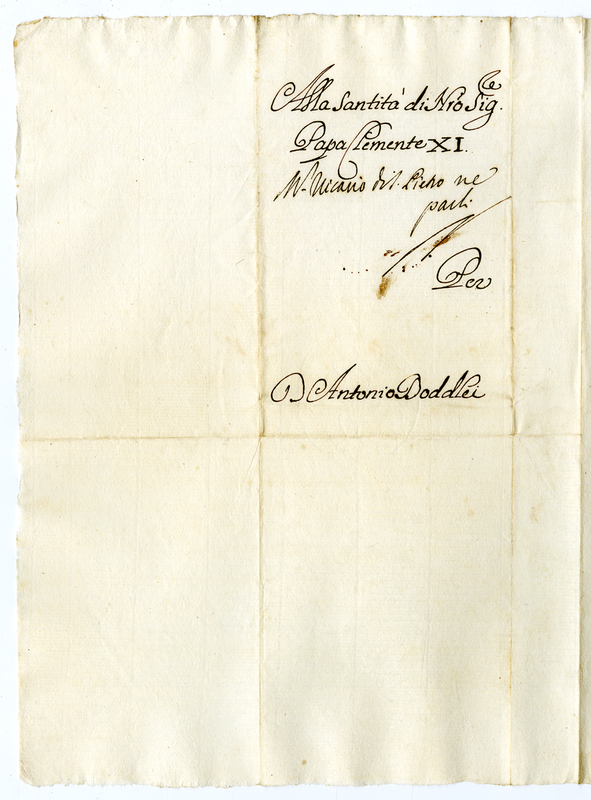 Alla Santità di Nrõ Sig.re
Papa Clemente XI.
Mr. Vicario di S. Pietro ne
parli
Per
D Antonio Doddlei